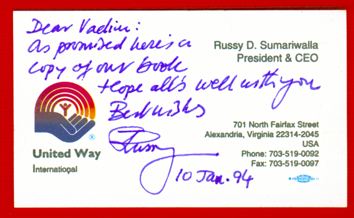 Dear Vadim:
As promised here's a
copy of our book
Hope all's well with you
Best wishes
Russy
10 Jan. 94
Russy D. Sumariwalla
President & CEO
United Way
International
701 North Fairfax Street
Alexandria, Virginia 22314-2045
USA
Phone: 703-519-0092
Fax: 703-519-0097